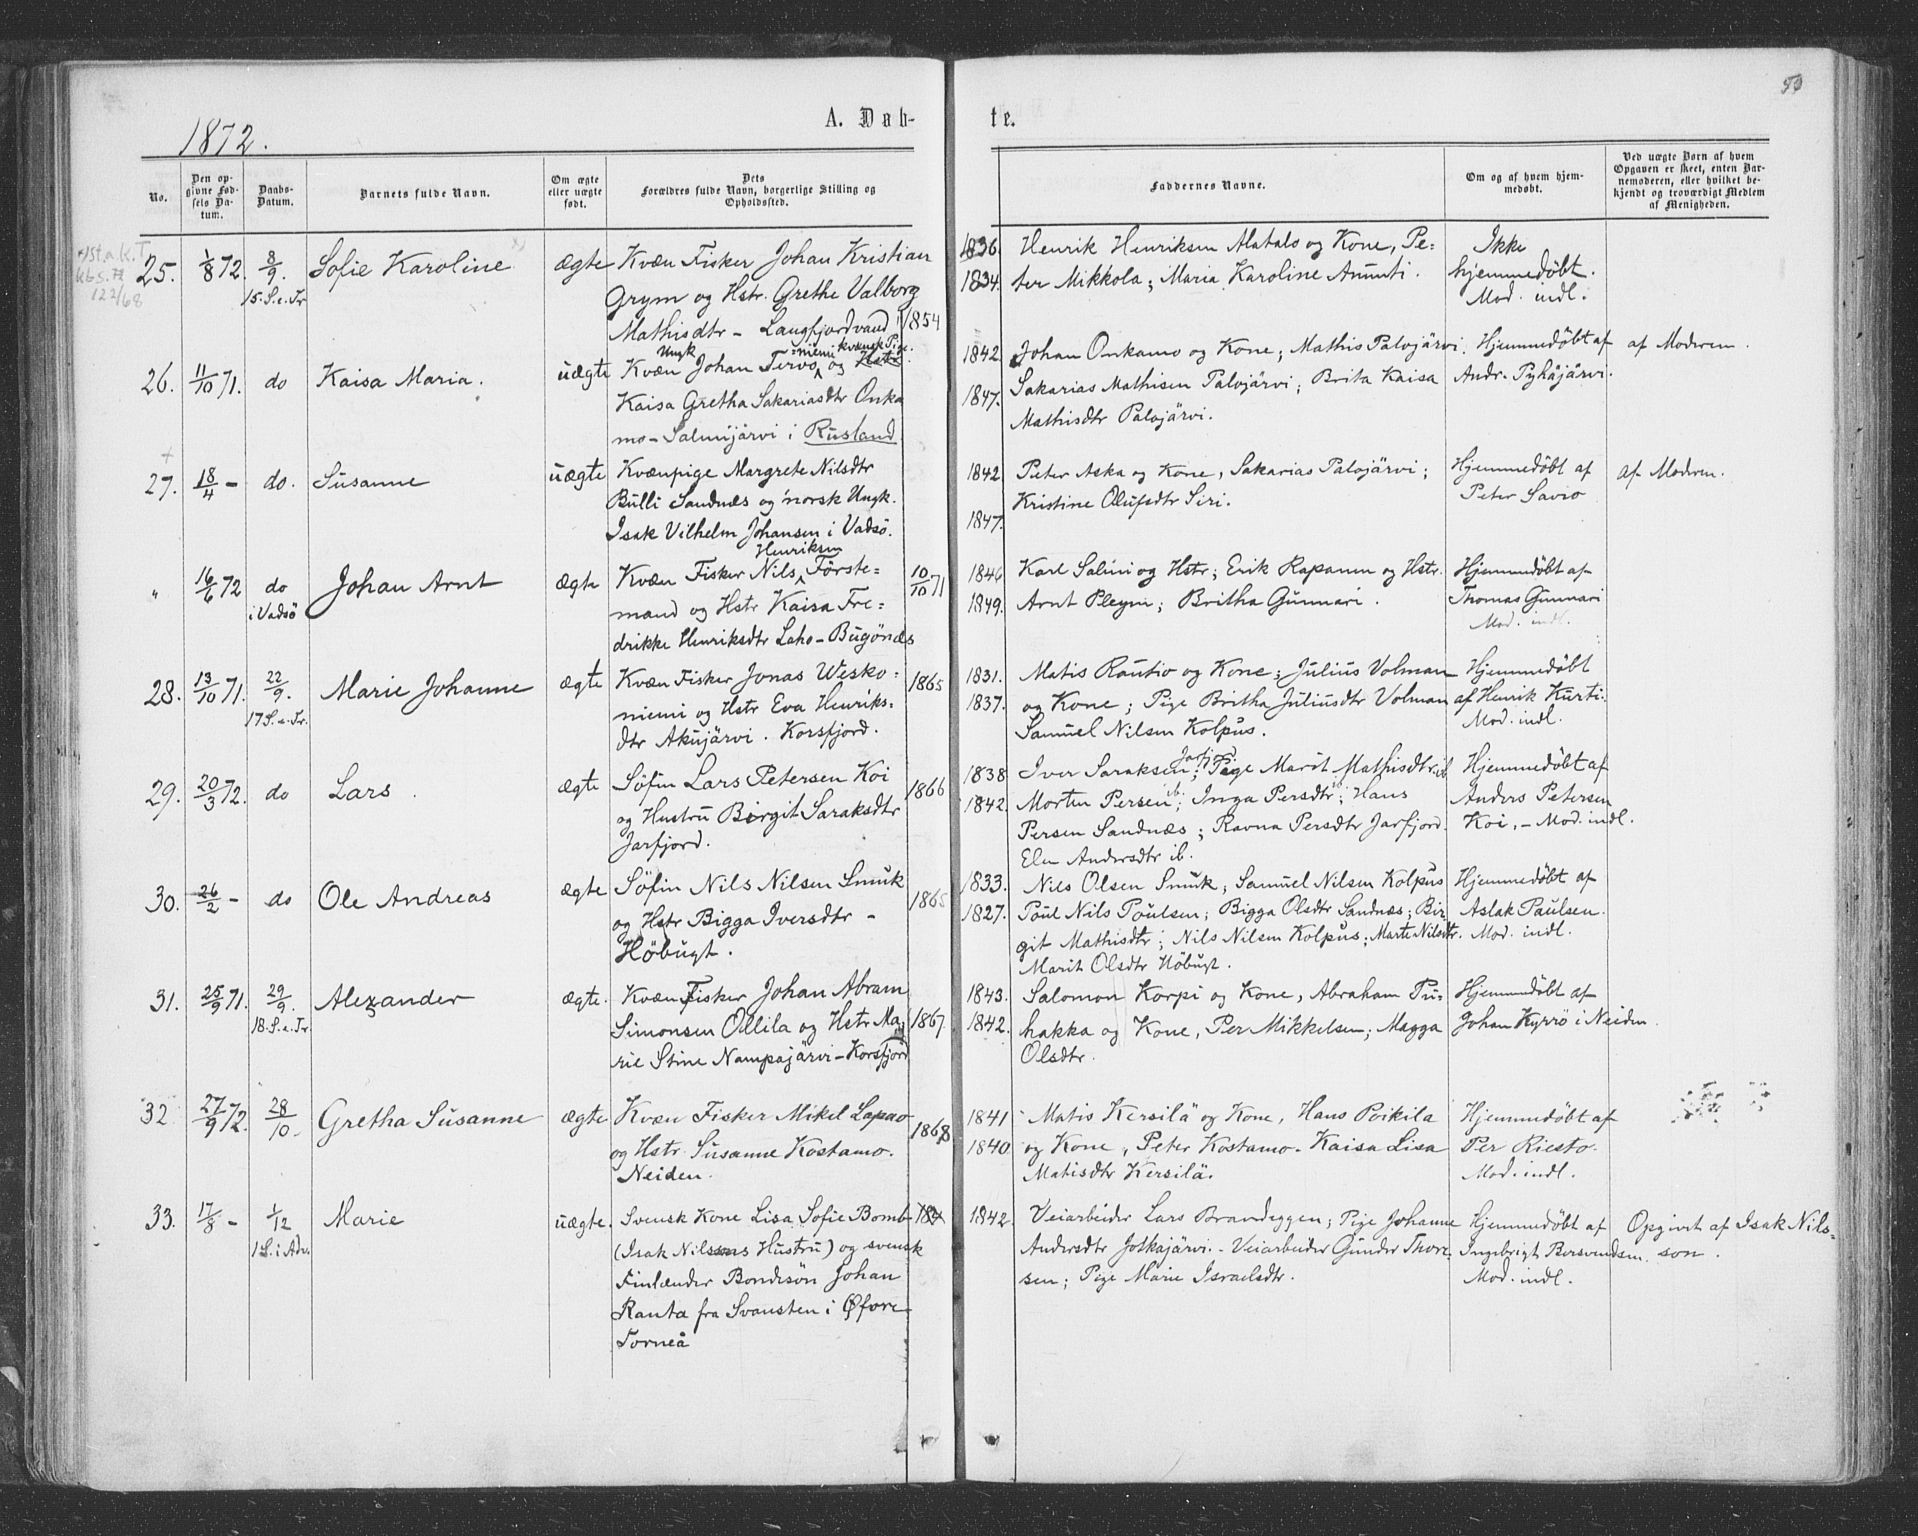 50
A. Døb-
te.
1872.
No.
Den opgivne Fødsels Datum.
Daabs-Datum.
Barnets fulde Navn.
Om ægte eller uægte født.
Dets Forældres fulde Navn, borgerlige Stilling og Opholdssted.
Faddernes Navne.
Om og af hvem hjemmedøbt.
Ved uægte Børn af hvem Opgaven er skeet, enten Barnemoderen, eller hvilket bekjendt og troværdigt Medlem af Menigheden.
25. 1/8 72. 8/9. Sofie Karoline ægte Kvæn Fisker Johan Kristian
15. S. e. Tr
Grym og Hstr. Grethe Valborg
Mathisdtr - Langfjordvand 1854
1836. Henrik Henriksen Alatalo og Kone, Pe-
1834. ter Mikkola; Maria Karoline Anunti.
Ikke
hjemmedøbt.
Mod. indl.
26. 11/10 71. do Kaisa Maria. uægte Kvæn Ungk Johan Tervo-niemi og kvænsk Pige.
Kaisa Gretha Sakariasdtr Onka
mo - Salmijärvi i Rusland
1842. Johan Onkamo og Kone; Mathis Palojärvi.
1847. Sakarias Mathisen Palojärvi; Brita Kaisa
Mathisdtr Palojärvi.
Hjemmedøbt af
Andr. Pyhäjärvi.
af Moderen.
27. 18/4 - do. Susanne uægte Kvænpige Margrete Nilsdtr
Bulli Sandnæs og norsk Ungk.
Isak Vilhelm Johansen i Vadsö.
1842 Peter Aska og Kone, Sakarias Palojärvi;
1847. Kristine Olufsdtr Siri.
Hjemmedöbt af
Peter Savio
af Moderen.
" 16/6 72 do Johan Arnt ægte Kvæn Fisker Nils Henriksen Förste-
i Vadsö
mand og Hstr Kaisa Fre-
drikke Henriksdtr Laho - Bugönæs
10/10 71
1846 Karl Salmi og Hstr; Erik Rapanen og Hstr.
1849. Arnt Pleym; Britha Gunnari.
Hjemmedöbt af
Thomas Gunnari
Mod. indl.
28. 13/10 71. 22/9. Marie Johanne ægte Kvæn Fisker Jonas Wesko-
17 S. e. Tr.
niemi og Hstr Eva Henriks-
dtr Akujärvi. Korsfjord.
1865
1831. Matis Rautio og Kone; Julius Volman
1837. og Kone; Pige Britha Juliusdtr Volman
Samuel Nilsen Kolpus.
Hjemmedöbt
af Henrik Kurti.
Mod. indl.
29. 20/3 72. do Lars. ægte Söfin Lars Petersen Koi
og Hustru Birgit Saraksdtr
Jarfjord.
1866
1838 Iver Saraksen; Pige Marit Mathisdtr ib.
1842. Morten Persen ib.; Inga Persdtr ib; Hans
Persen Sandnæs; Ravna Persdtr Jarfjord.
Elen Andersdtr ib.
Hjemmedöbt af
Anders Petersen
Koi, - Mod. indl.
30. 26/2 - do Ole Andreas ægte Söfin Nils Nilsen Smuk
og Hstr Bigga Iversdtr -
Höbugt.
1865
1833. Nils Olsen Smuk; Samuel Nilsen Kolpus
1827. Poul Nils Poulsen; Bigga Olsdtr Sandnæs; Bir-
git Mathisdtr; Nils Nilsen Kolpus; Marte Nilsdtr.
Marit Olsdtr Höbugt.
Hjemmedöbt af
Aslak Paulsen.
Mod. indl.
31. 25/9 71. 29/9. Alexander ægte. Kvæn Fisker Johan Abram
18. S. e. Tr.
Simonsen Ollila og Hstr Ma-
rie Stine Nampajärvi - Korsfjord
1867.
1843. Salomon Korpi og Kone, Abraham Pu-
1842. hakka og Kone, Per Mikkelsen; Magga
Olsdtr.
Hjemmedöbt af
Johan Kyrrö i Neiden.
32 27/9 72. 28/10. Gretha Susanne ægte Kvæn Fisker Mikel Lapao
og Hstr. Susanne Kostamo.
Neiden.
1868
1841 Matis Kersilä og Kone, Hans Poikila
1840 og Kone, Peter Kostamo. Kaisa Lisa
Matisdtr Kersilä.
Hjemmedöbt af
Per Riesto.
Mod. indl.
33. 17/8 - 1/12 Marie uægte. Svensk Kone Lisa Sofie Bomb-
1 S. i Adv.
(Isak Nilssons Hustru) og svensk
Finlænder Bondesön Johan
Ranta fra Svansten i Øfvre
Torneå
1842. Veiarbeider Lars Brandeggen; Pige Johanne
Andersdtr Jotkajärvi. - Veiarbeider Gunder Thore-
sen; Pige Marie Israelsdtr.
Hjemmedöbt af
Ingebrigt Bersvendsen.
Mod. indl.
Opgivet af Isak Nils-
son.